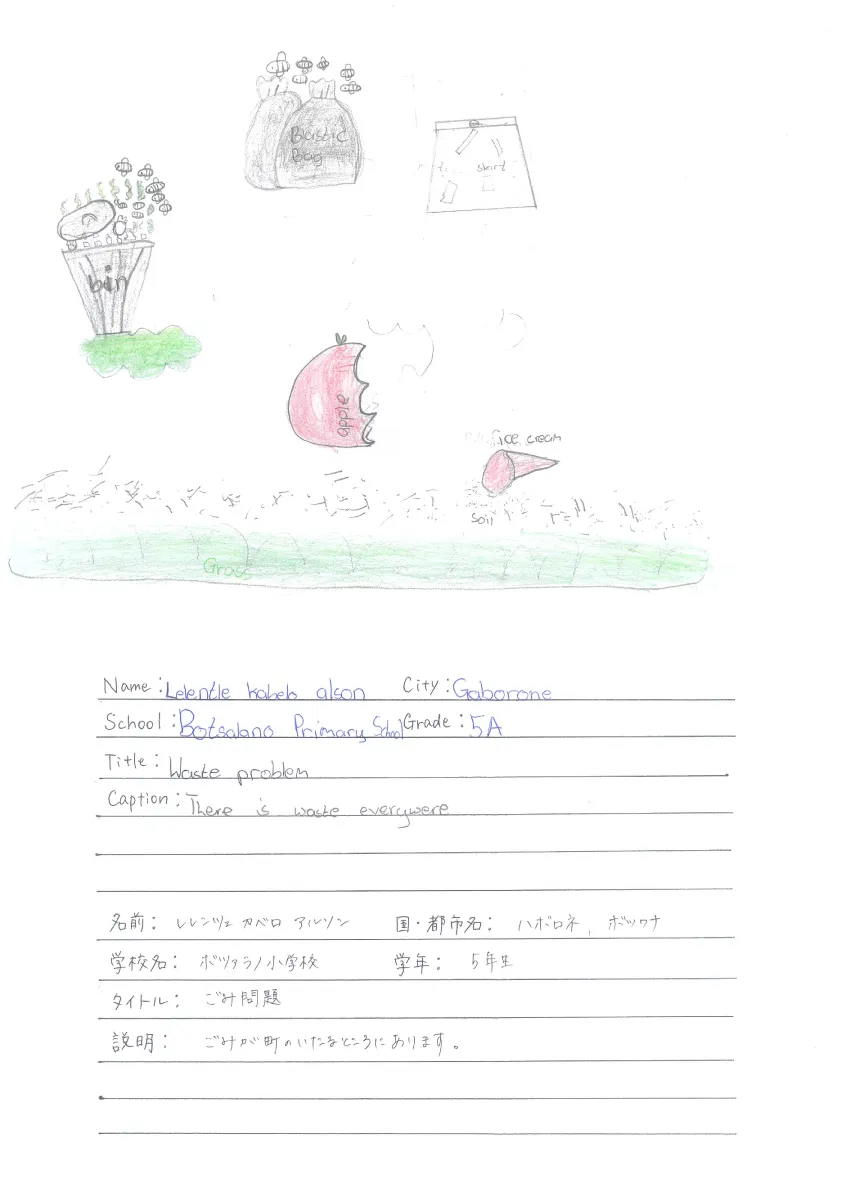 Bastic
Bag
skirt
bin
apple
ice cream
soil
Grass
Name: Lelentle Kabelo alson City: Gaborone
School: Botsalano Primary School Grade: 5A
Title: Waste problem
Caption: There is waste everywere
名前: レレンツェ カベロ アルソン 国・都市名: ハボロネ, ボツワナ
学校名: ボツァラノ小学校 学年: 5年生
タイトル: ごみ問題
説明: ごみが町のいたるところにあります。